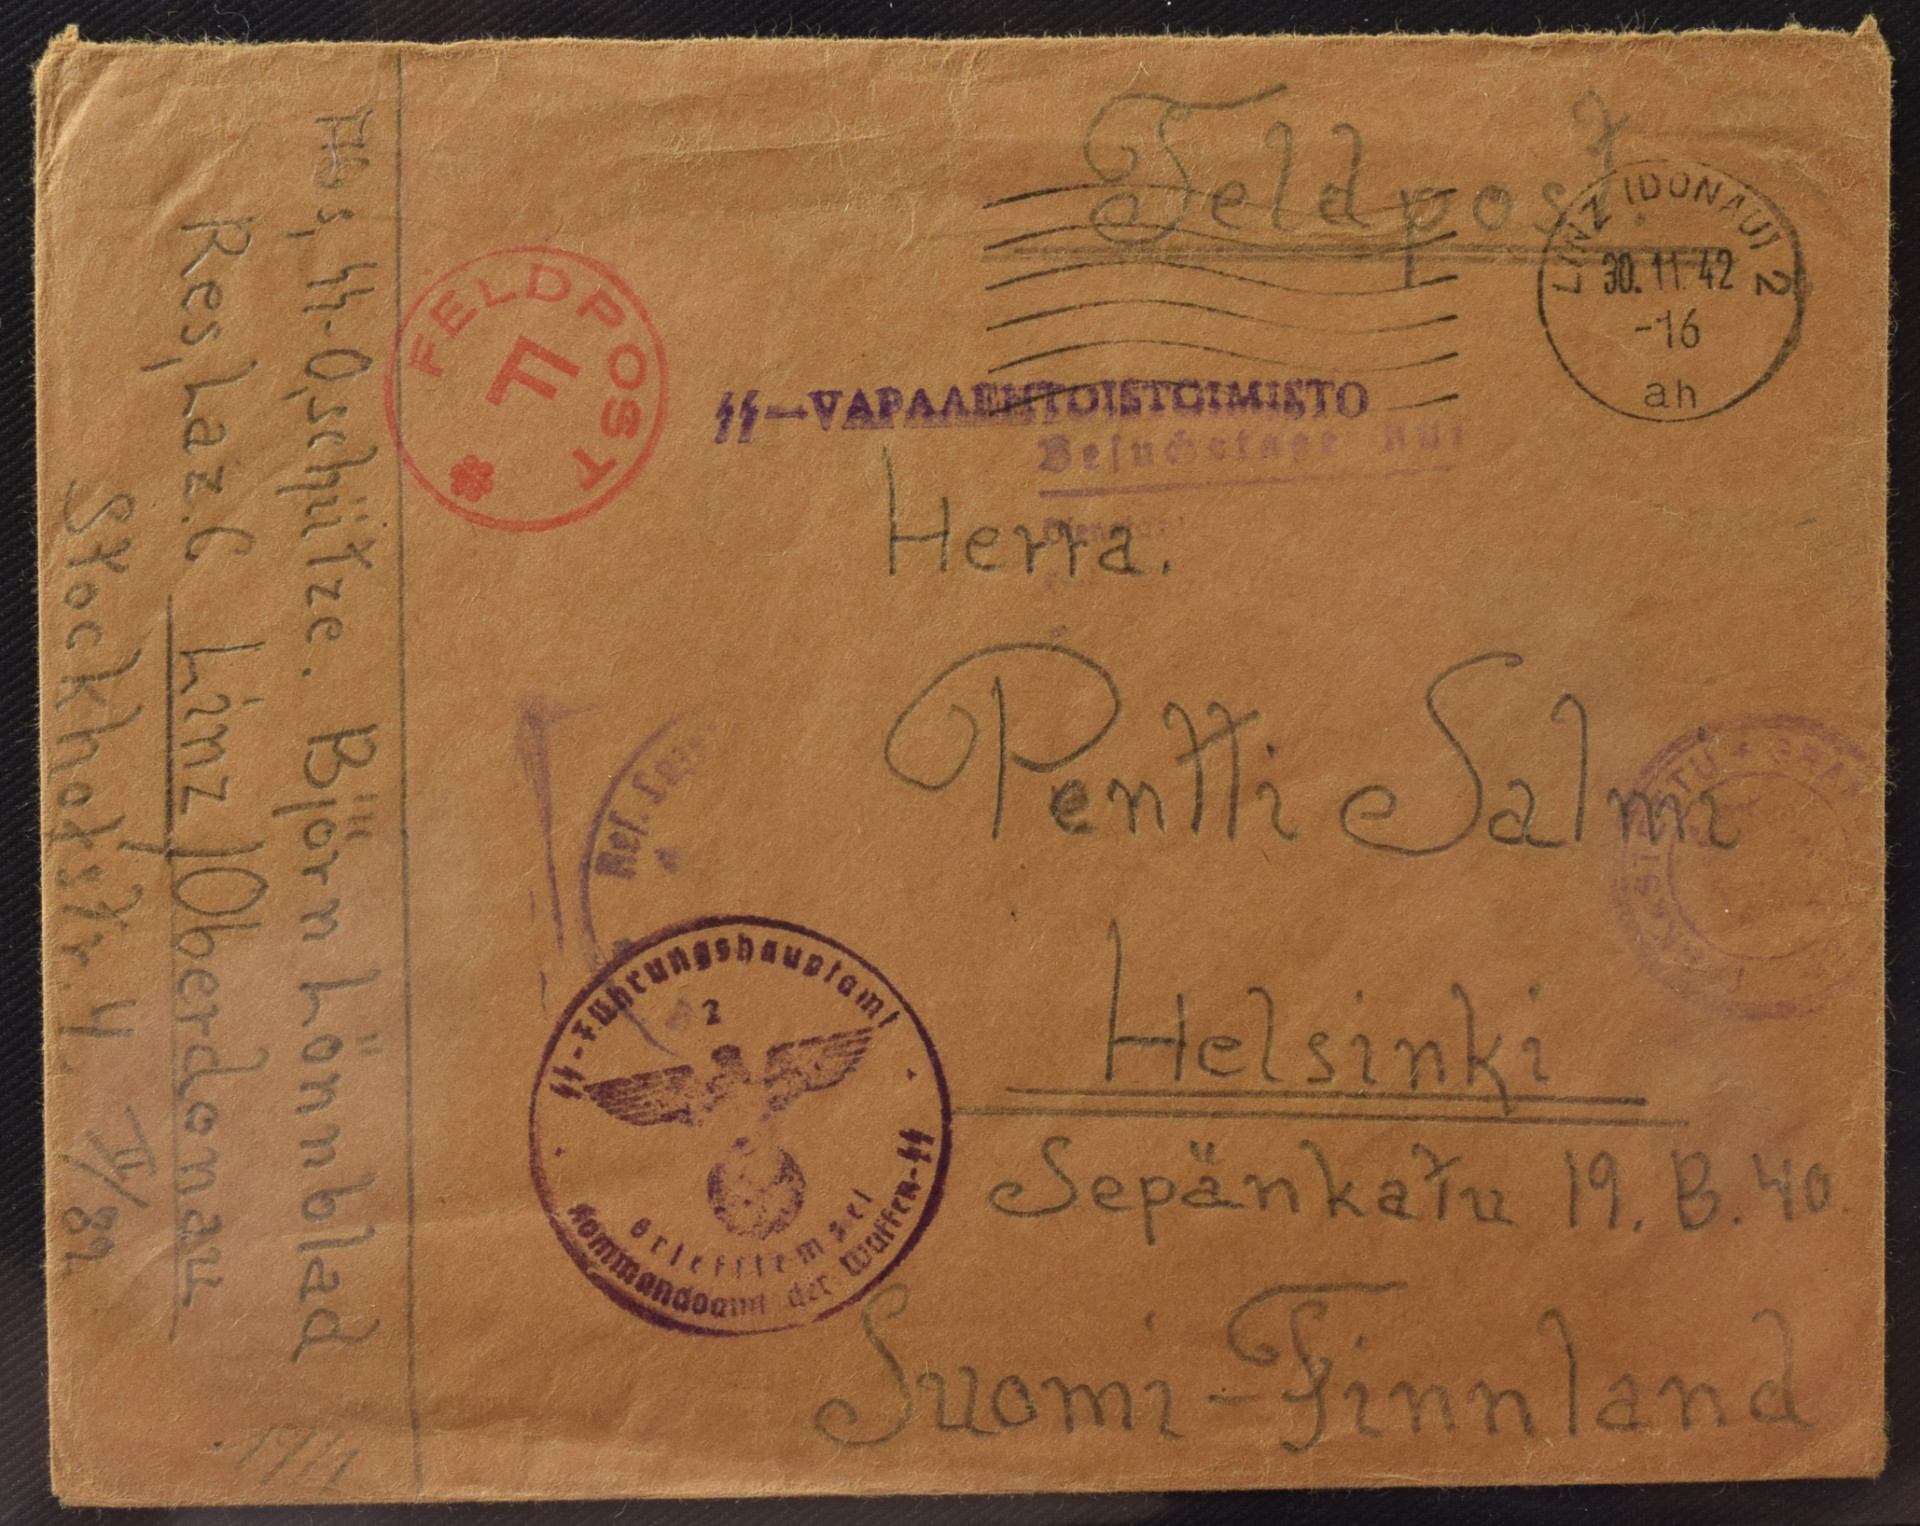 Feldpost.
LINZ (DONAU) 2
30.11.42
-16
ah
FELDPOST
F
ᛋᛋ-VAPAAEHTOISTOIMISTO
Besuchstage nur
Herra.
Pentti Salmi
Helsinki
Sepänkatu 19. B. 40.
Suomi-Finnland
Abs, ᛋᛋ-O,schütze. Björn Lönnblad
Res,Laz. C Linz /Oberdonau
Stockhofstr. 4 II/82
Res.
ᛋᛋ-Führungshauptamt
2
Briefstempel
Kommandoamt der Waffen-ᛋᛋ